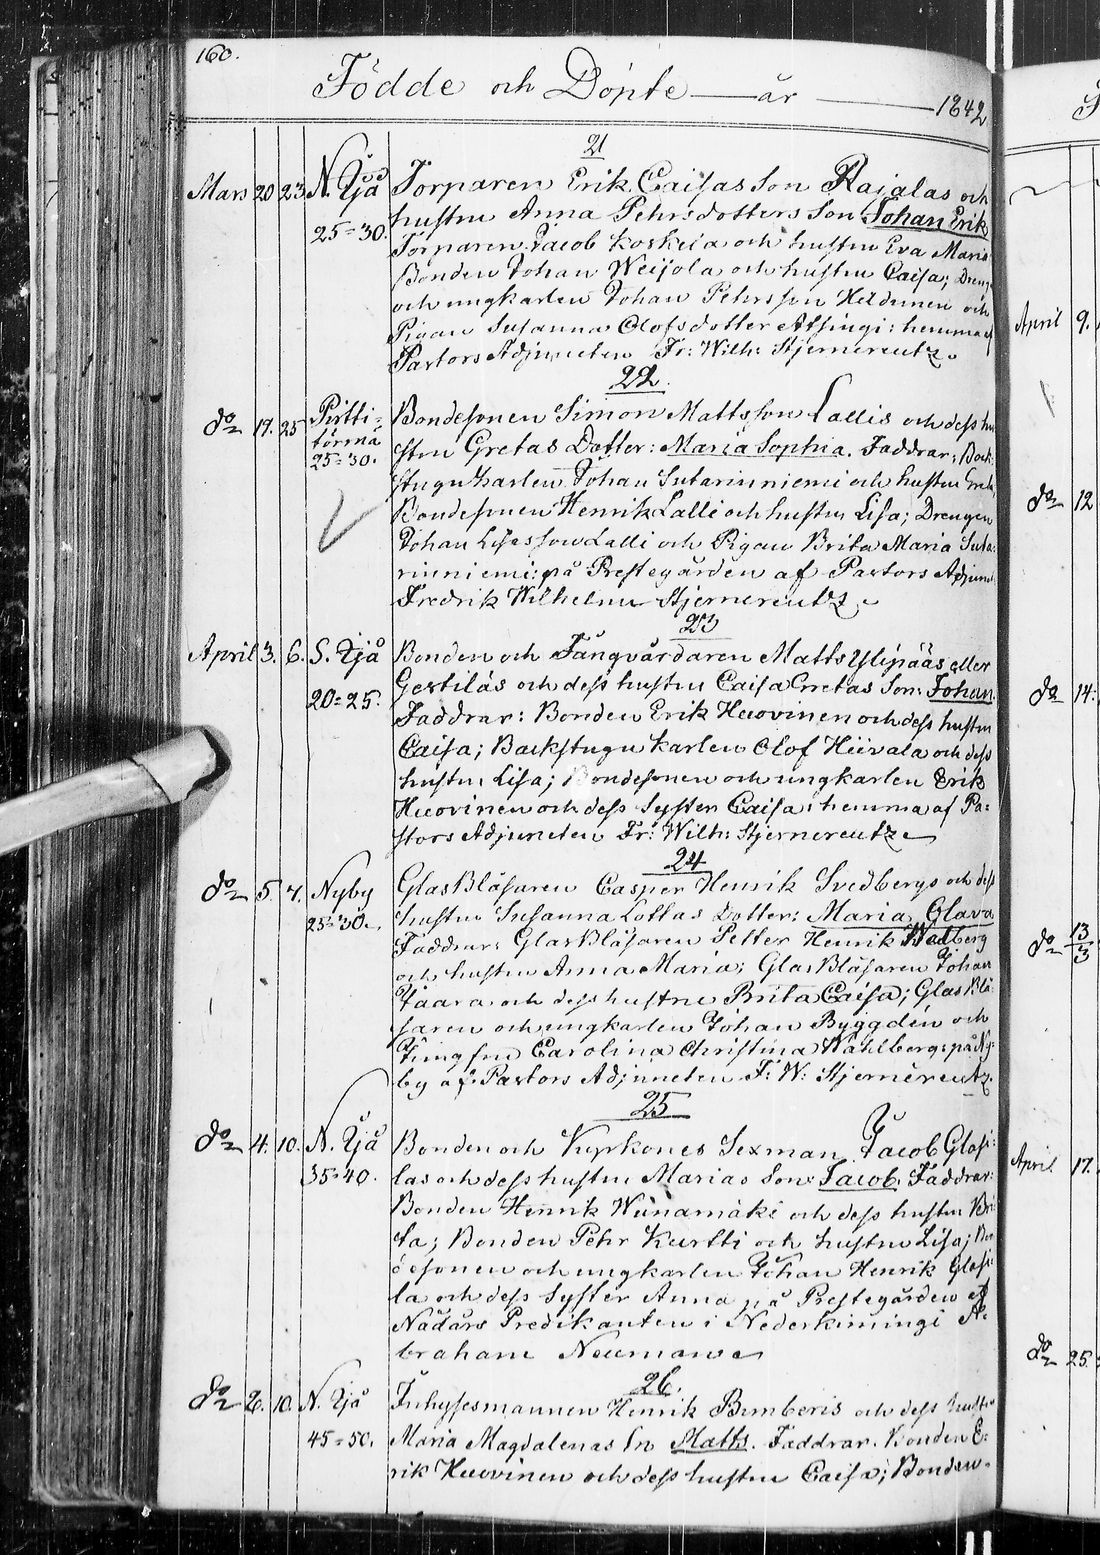 160.
Födde och Döpte — år — 1842
21
Mars 20 23 N. Ijå Torparen Erik Caisasson Rajalas och
25=30. hustru Anna Pehrsdotters Son Johan Erik
Torparen Jacob Koskela och hustru Eva Maria
Bonden Johan Weijola och hustru Caisa; Dreng
och ungkarlen Johan Pehrsson Heldunen och
Pigan Susanna Olofsdotter : hemma af
Pastors Adjuncten Fr: Wilh: Stjerncreutz.
22.
do 17. 25 Pirtti= Bondesonen Simon Mattsson Lallis och dess hu
törmä stru Gretas Dotter: Maria Sophia. Faddrar: Back=
25=30. stugu karlen Johan Sutarinniemi och hustru Greta
Bondesonen Henrik Lalli och hustru Lisa; Drengen
Johan Lisasson Lalli och Pigan Brita Maria Suta=
rinniemi: på Prestegården af Pastors Adjunct
Fredrik Wilhelm Stjerncreutz.
23
April 3. 6. S. Ijå Bonden och Fångvårdaren Matts Ylipääs eller
20=25. Gertilás och dess hustru Caisa Gretas Son: Johan.
Faddrar: Bonden Erik Huovinen och dess hustru
Caisa; Backstugu karlen Olof Hiivala och dess
hustru Lisa; Bondesonen och ungkarlen Erik
Huovinen och dess Syster Caisa: hemma af Pa=
stors Adjuncten Fr: Wilh: Stjerncreutz
24
do 5. 7. Nyby GlasBlåsaren Casper Henrik Svedbergs och dess
25=30. hustru Susanna Lottas Dotter: Maria Olava
Faddrar: GlasBlåsaren Petter Henrik Wadberg
och hustru Anna Maria; GlasBlåsaren Johan
Jaara och dess hustru Brita Caisa; GlasBlå=
saren och ungkarlen Johan Byggdén och
Jungfru Carolina Christina Wahlberg: på Ny=
by af Pastors Adjuncten F: W: Stjerncreutz.
25
do 4. 10. N. Ijå Bonden och Kyrkones Sexman Jacob Glosi=
35=40. las och dess hustru Marias Son: Jacob. Faddrar:
Bonden Henrik Wänamäki och dess hustru Bri=
ta; Bonden Pehr Kurtti och hustru Lisa; Bon
desonen och ungkarlen Johan Henrik Glosi=
la och dess Syster Anna på Prestegården af
Nådårs Predikanten i Nederkimingi A=
braham Neuman
26.
do 2. 10. N. Ijå Inhysesmannen Henrik Bumberis och dess hustru
45=50. Maria Magdalenas Sn Matts. Faddrar. Bonden E=
rik Huovinen och dess hustru Caisa; Bonden
April 9.
do 12
do 14.
do 13/3
April 17.
do 25.